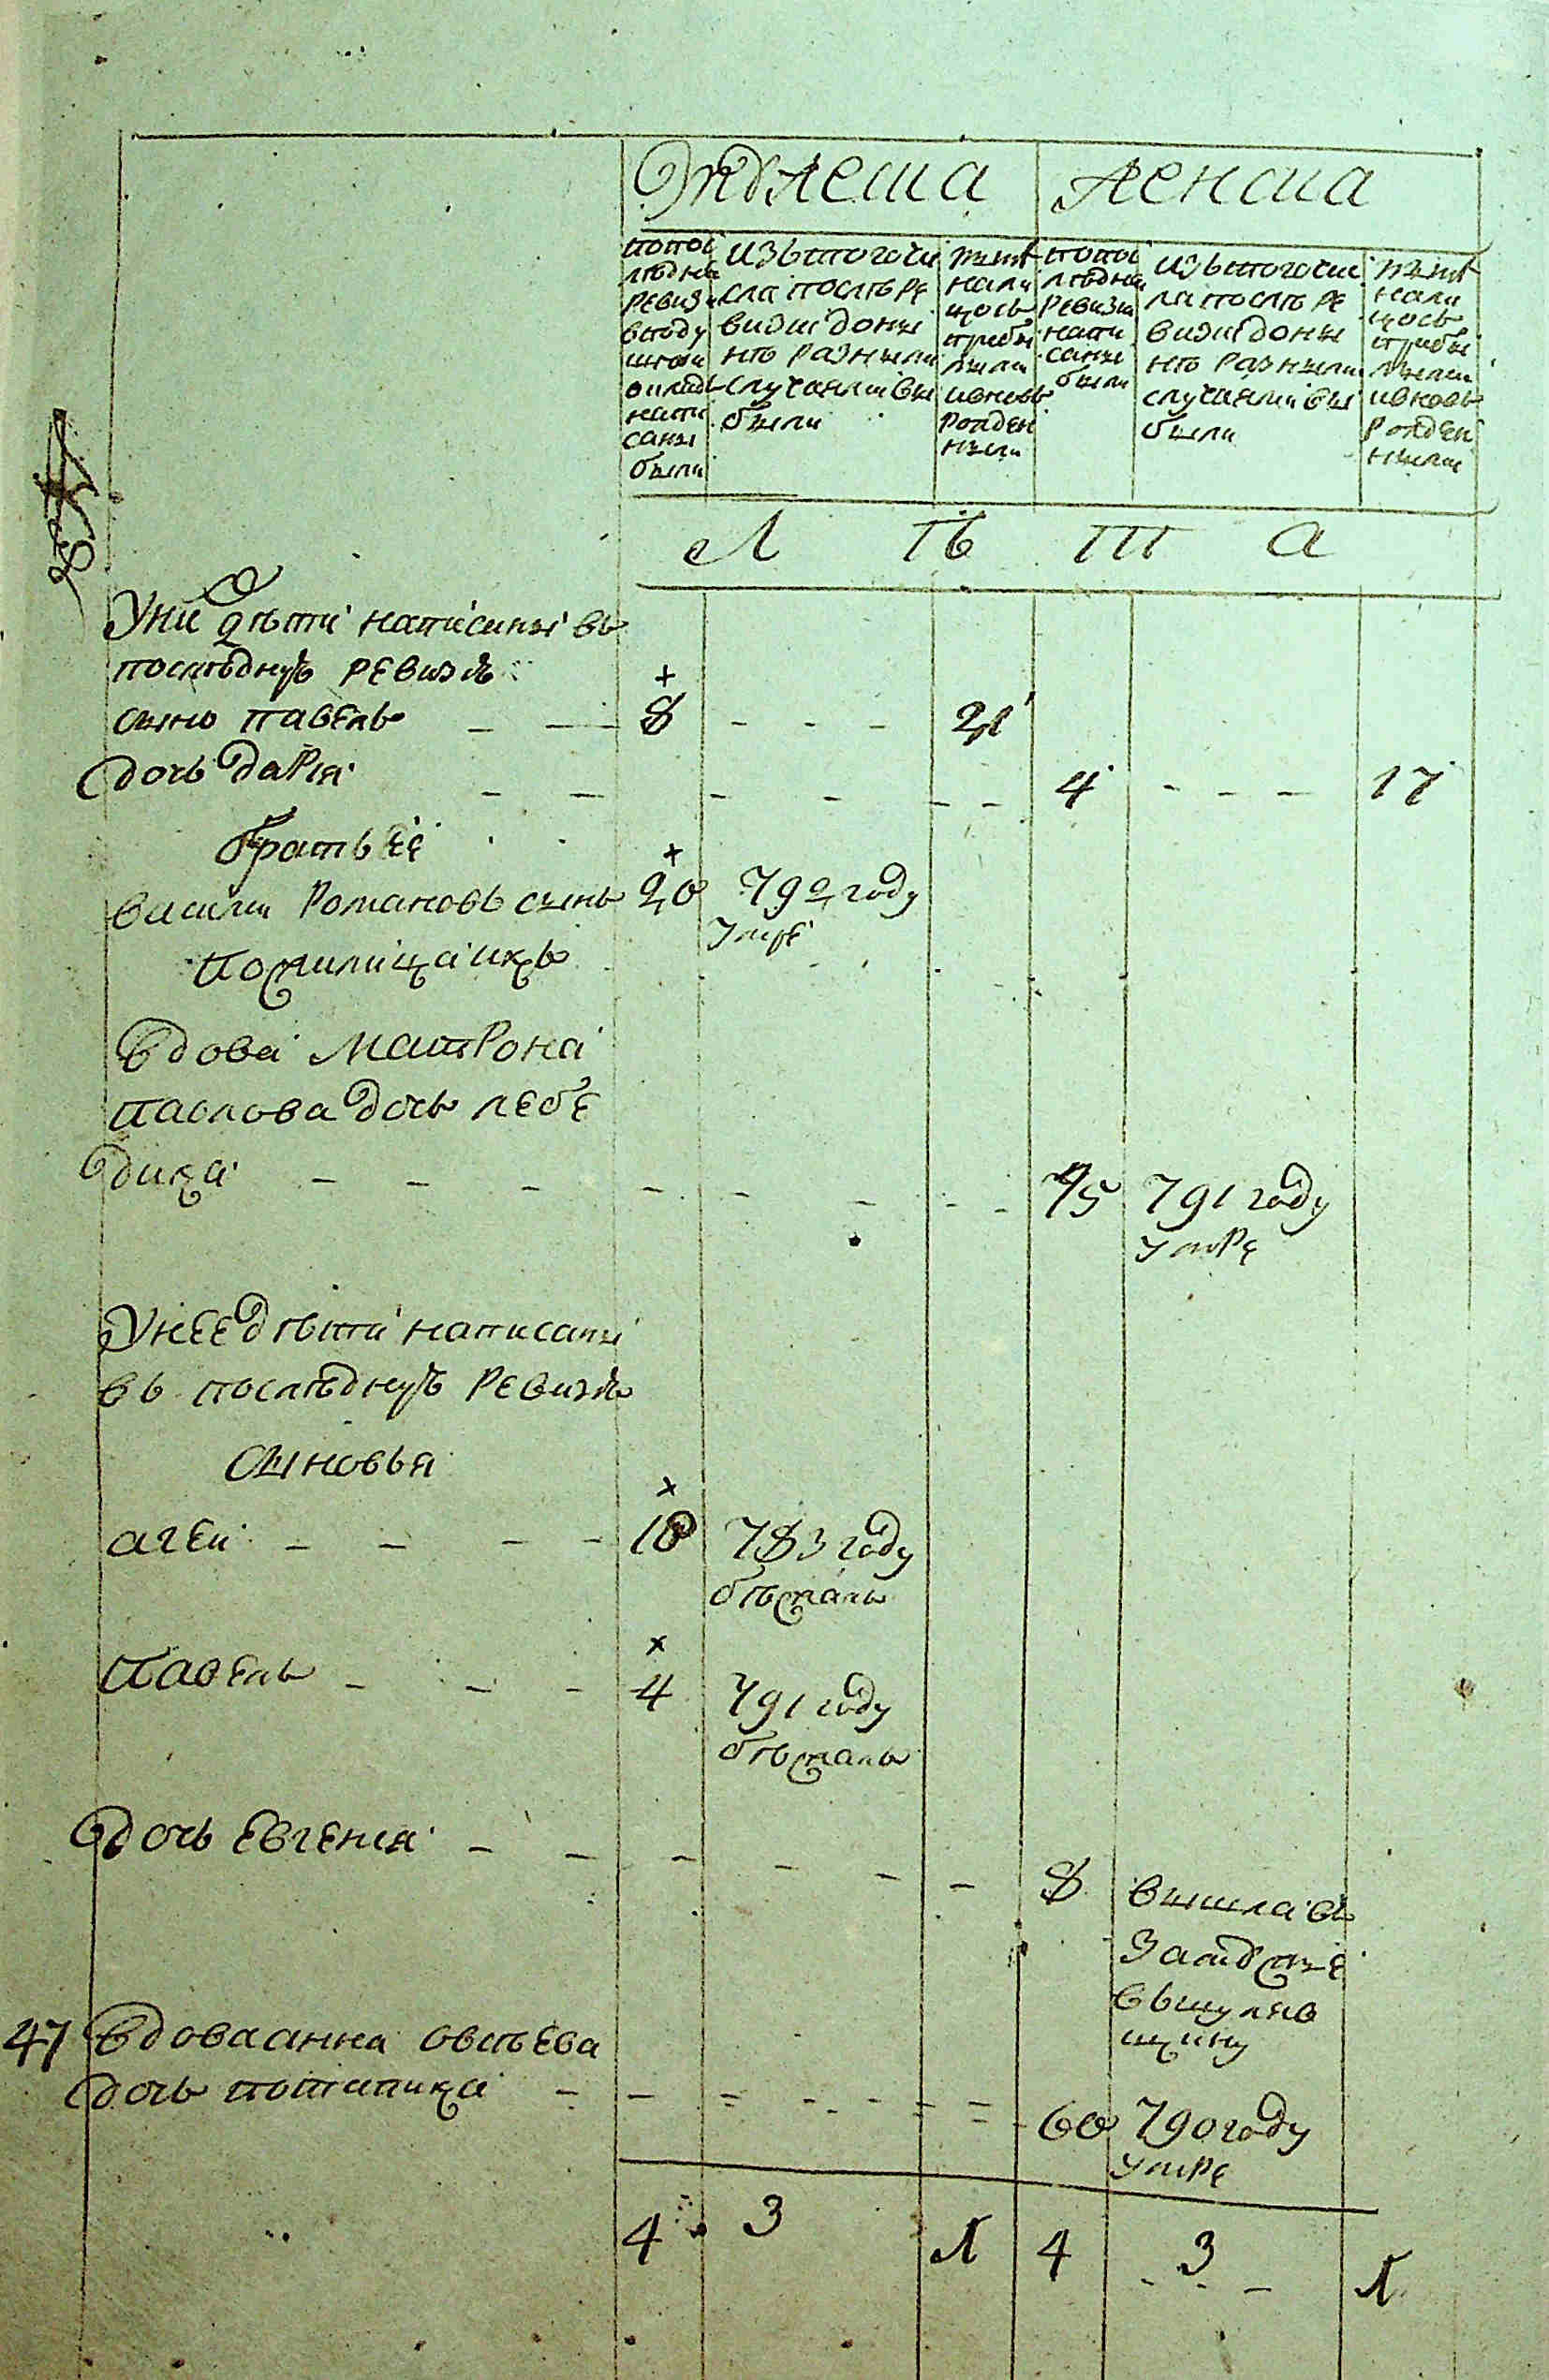 Мужеска Женска
попос
ледней
ревизи
въ поду
шном
окладе
напи
саны
были
изътого чи
сла после ре
визии доны
нѣ разными
случаями вы
были
ныне
нали
цось
прибы
лыми
и вновь
рожден
ными
попос
ледней
ревизии
напи
саны
были
изътого чис
ла после ре
визии доны
нѣ разными
случаями вы
были
ныне
нали
цось
прибы
лыми
и вновь
рожден
ными
Л ѣ т а
У них дѣти написаны въ
последную ревизию
сынъ павелъ 8 21
дочь дария 4 17
братъ ее
василии Романовъ сынъ 20 792 году
умре
вдова матрона
павлова дочь лебе
дика 45 791 году
умре
У нее дѣти написаны
въ последную ревизию
сыновья
агеи 10 783 году
бѣжалъ
павелъ 4 791 году
бѣжалъ
дочь евгения 8 вышла въ
замужие
47 вдова анна овсѣева
дочь потапика 60 790 году
умре
4 3 1 4 3 1